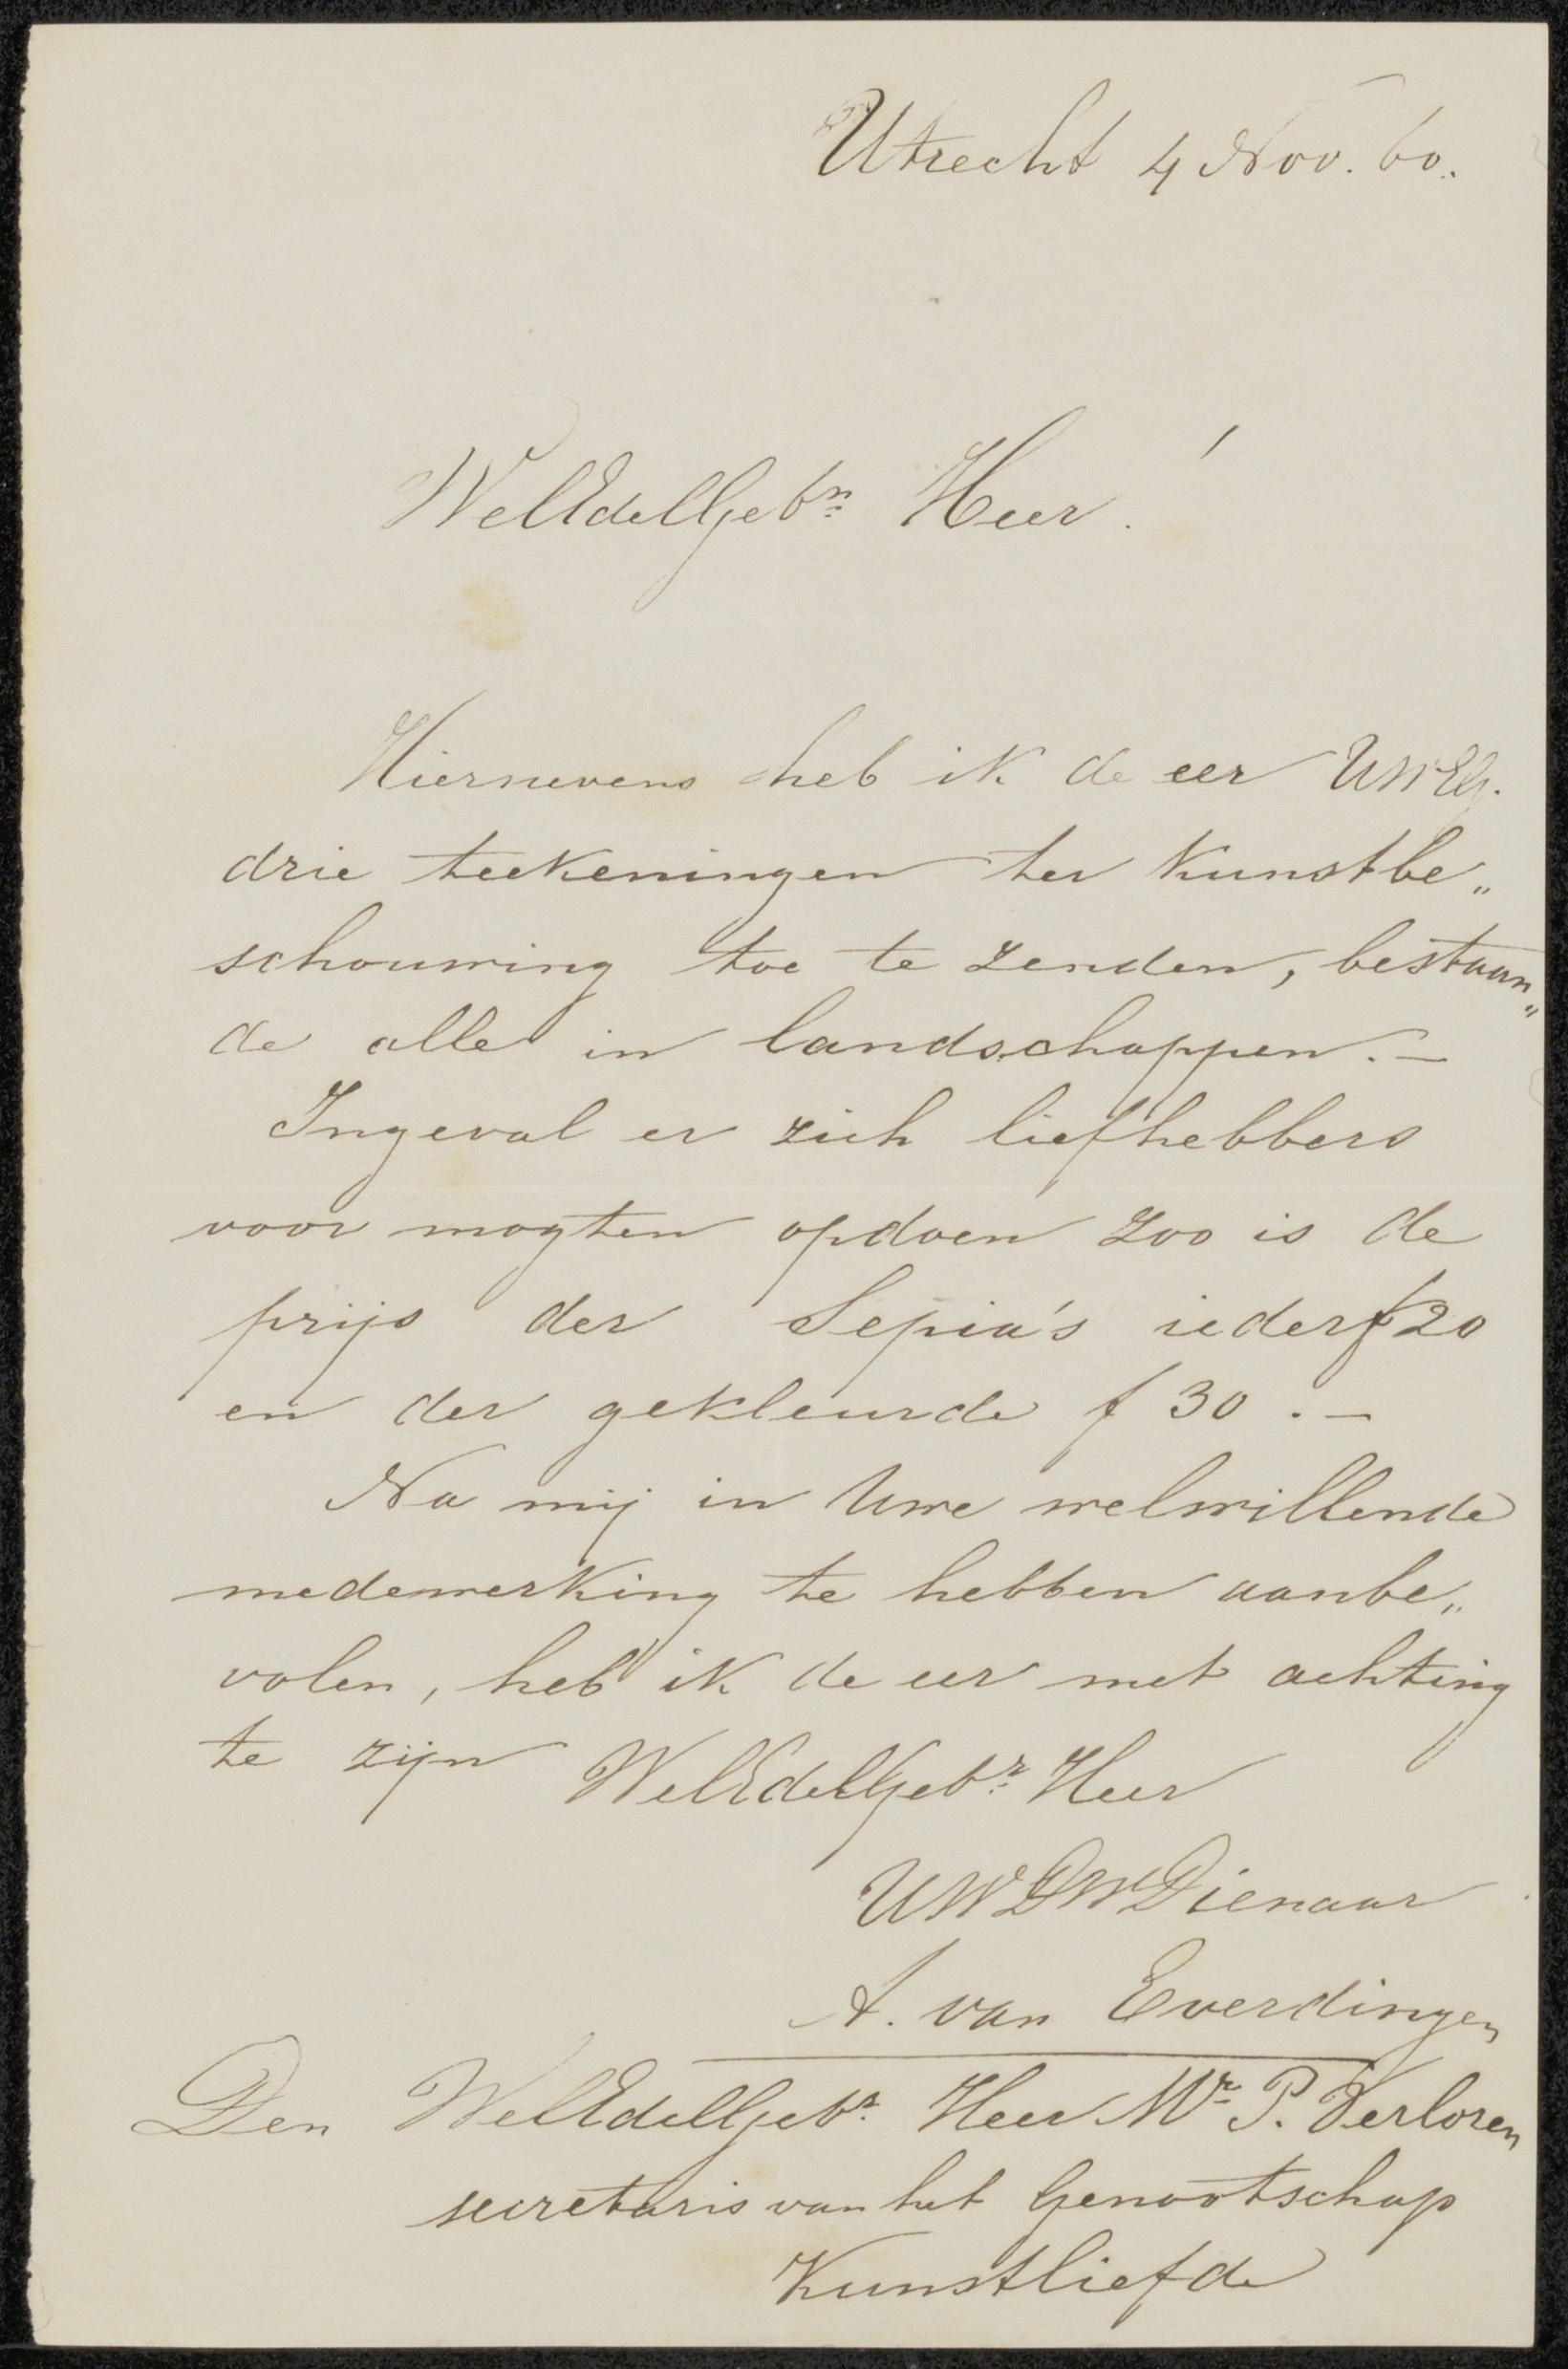 Utrecht 4 Nov. 60.
WelEdelGebn Heer!
Hiernevens heb ik de eer UWEG.
drie teekeningen ter Kunstbe„
schouwing toe te zenden, bestaan„
de alle in landschappen. —
Ingeval er zich liefhebbers
voor mogten opdoen zoo is de
prijs der Sepia's ieder f 20
en der gekleurde f 30 . —
Na mij in Uwe welwillende
medewerking te hebben aanbe„
volen, heb ik de eer met achting
te zijn WelEdelGebr Heer
UWDWDienaar
A. van Everdingen
Den WelEdelGebr Heer Mr P. Verloren
secretaris van het Genootschap
Kunstliefde